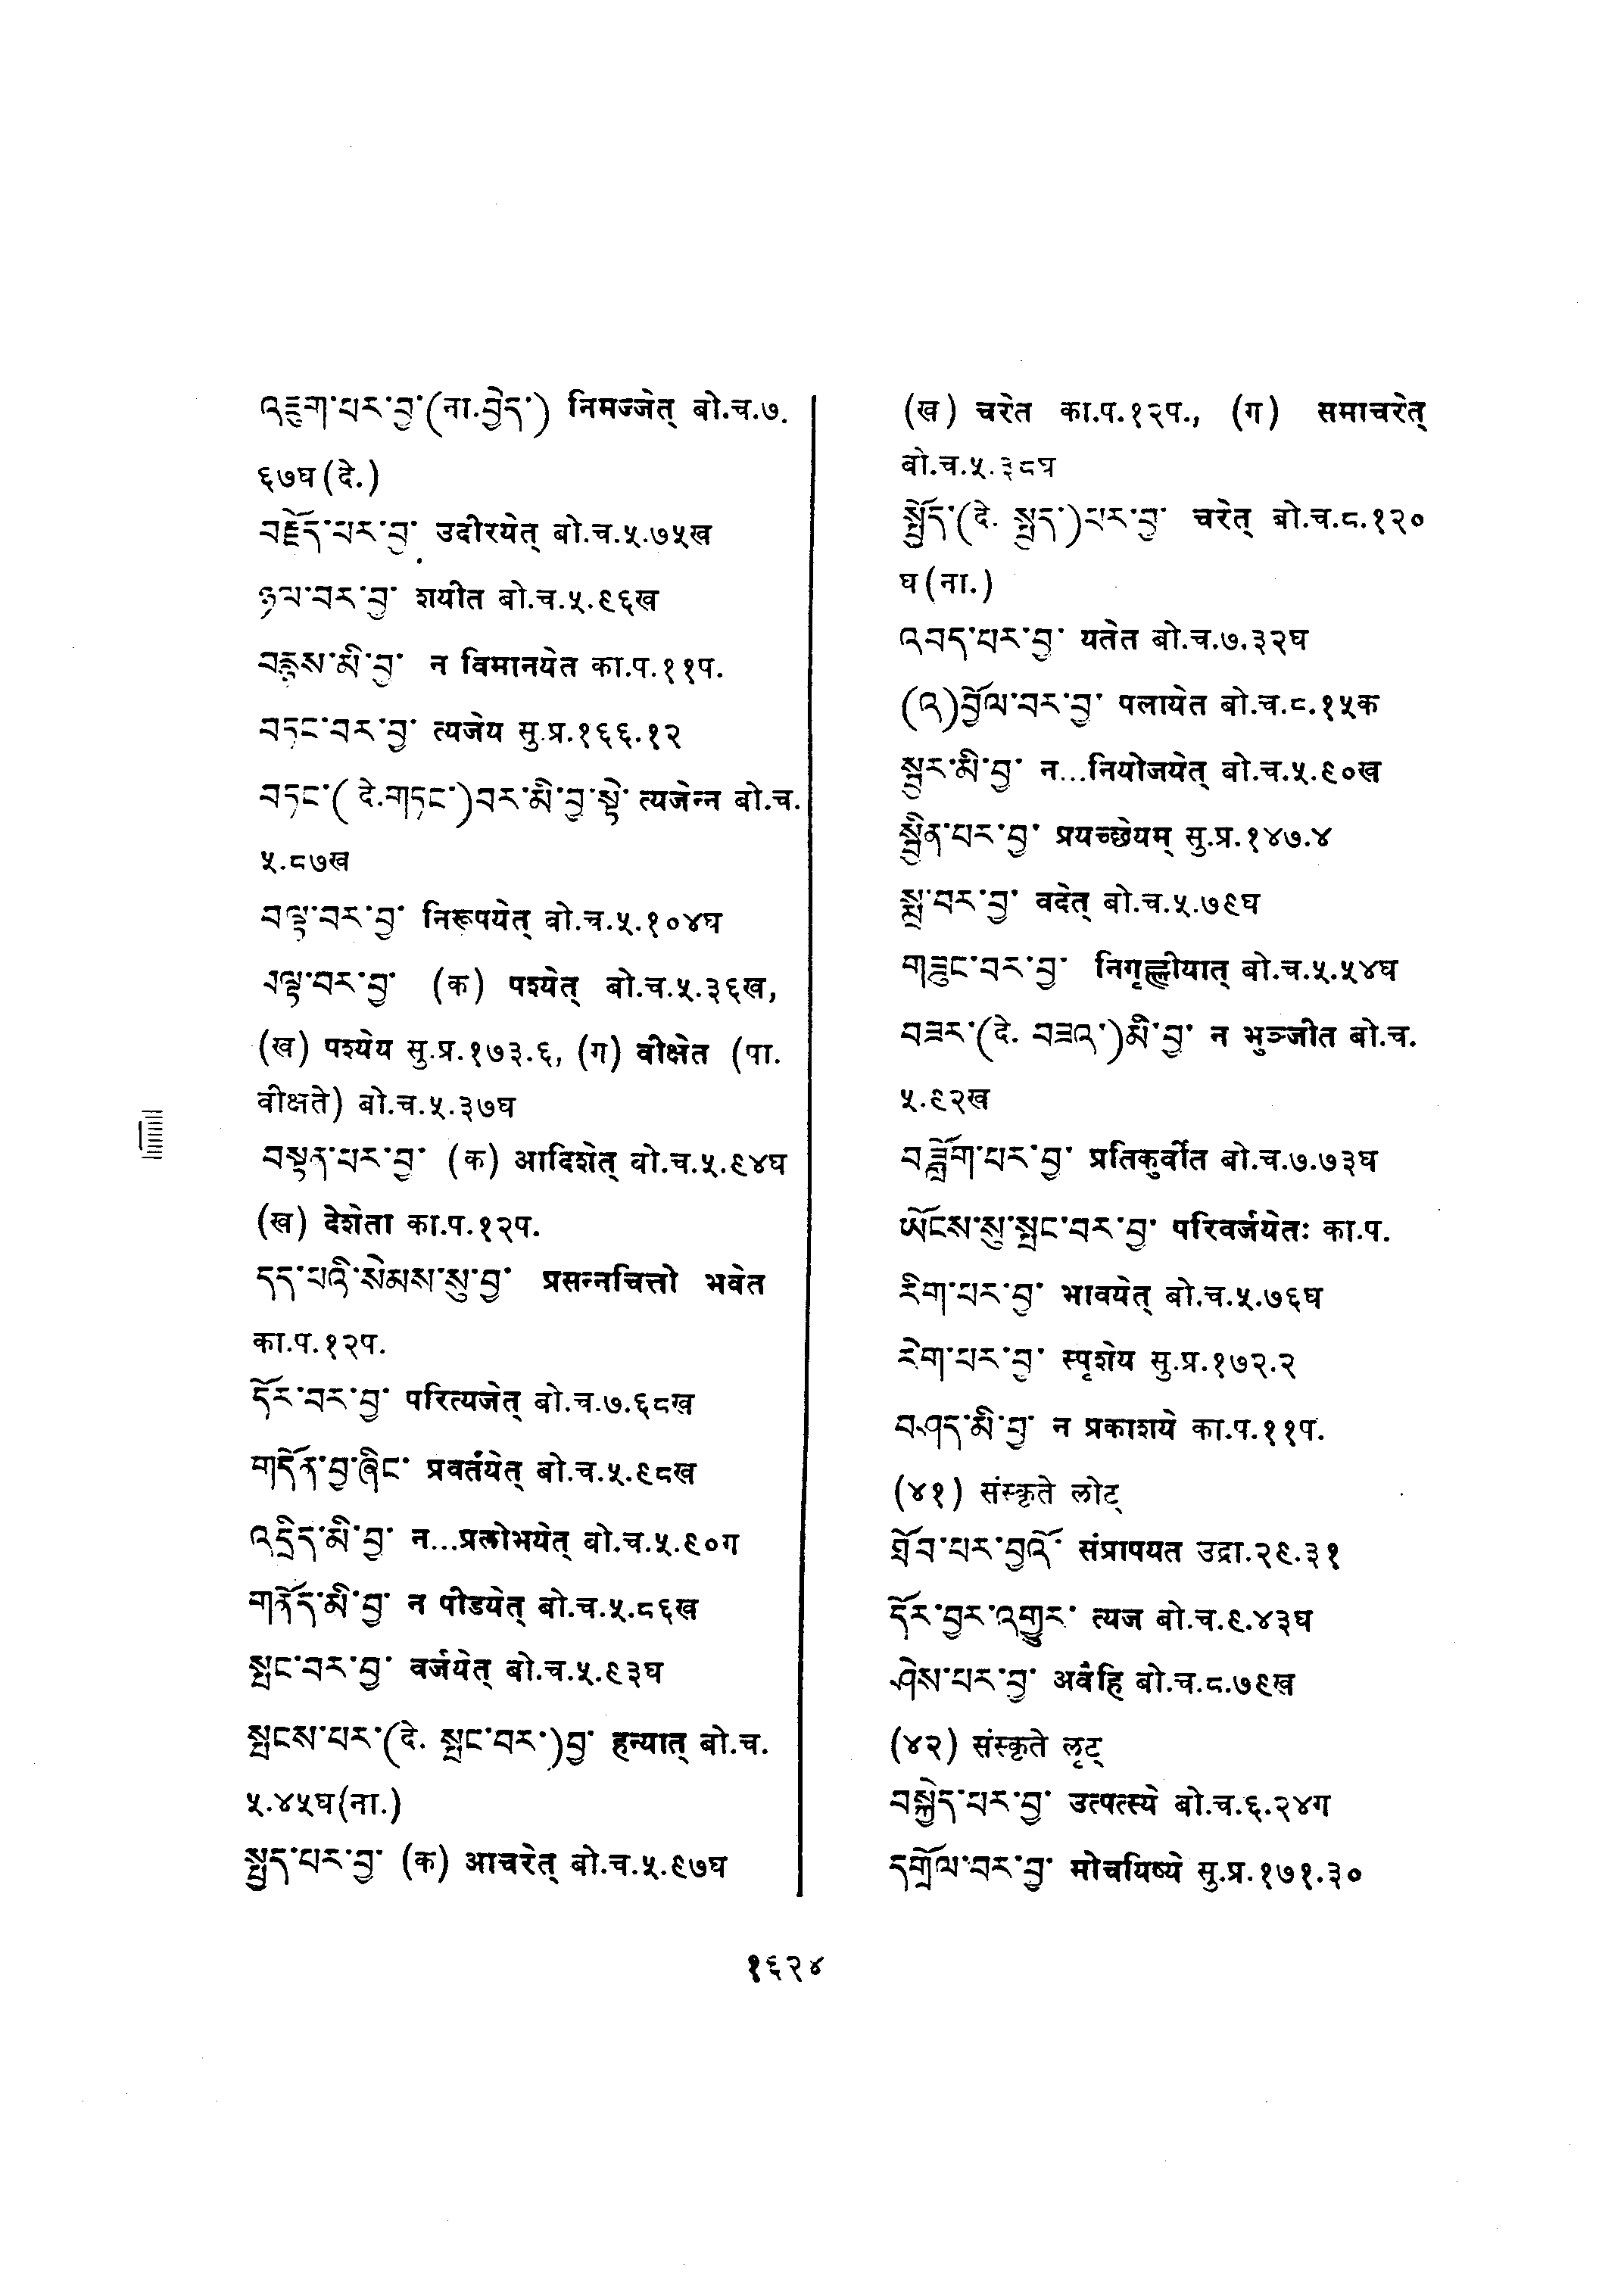 འཇུག་པར་བྱ་(ना.བྱེད་) निमज्जेत् बो.च.७.
६७घ(दे.)
བརྗོད་པར་བྱ་ उदीरयेत् बो.च.५.७५ख
ཉལ་བར་བྱ་ शयीत बो.च.५.९६ख
བརྙས་མི་བྱ་ न विमानयेत का.प.११प.
བཏང་བར་བྱ་ त्यजेय सु.प्र.१६६.१२
བཏང་( दे.གཏང་)བར་མི་བྱ་སྟེ་ त्यजेन्न बो.च.
५.८७ख
བལྟ་བར་བྱ་ निरूपयेत् बो.च.५.१०४घ
བལྟ་བར་བྱ་ (क) पश्येत् बो.च.५.३६ख,
(ख) पश्येय सु.प्र.१७३.६, (ग) वीक्षेत (पा.
वीक्षते) बो.च.५.३७घ
བསྟན་པར་བྱ་ (क) आदिशेत् बो.च.५.९४घ
(ख) देशेता का.प.१२प.
དད་པའི་སེམས་སུ་བྱ་ प्रसन्नचित्तो भवेत
का.प.१२प.
དོར་བར་བྱ་ परित्यजेत् बो.च.७.६८ख
གདོན་བྱ་ཞིང་ प्रवर्तयेत् बो.च.५.९८ख
འདྲིད་མི་བྱ་ न...प्रलोभयेत् बो.च.५.९०ग
གནོད་མི་བྱ་ न पीडयेत् बो.च.५.८६ख
སྤང་བར་བྱ་ वर्जयेत् बो.च.५.९३घ
སྤངས་པར་(दे. སྤང་བར་)བྱ་ हन्यात् बो.च.
५.४५घ(ना.)
སྤྱད་པར་བྱ་ (क) आचरेत् बो.च.५.९७घ
(ख) चरेत का.प.१२प., (ग) समाचरेत्
बो.च.५.३८घ
སྤྱོད་(दे. སྤྱད་)པར་བྱ་ चरेत् बो.च.८.१२०
घ(ना.)
འབད་པར་བྱ་ यतेत बो.च.७.३२घ
(འ)བྱོལ་བར་བྱ་ पलायेत बो.च.८.१५क
སྦྱར་མི་བྱ་ न...नियोजयेत् बो.च.५.९०ख
སྦྱིན་པར་བྱ་ प्रयच्छेयम् सु.प्र.१४७.४
སྨྲ་བར་བྱ་ वदेत् बो.च.५.७९घ
གཟུང་བར་བྱ་ निगृह्णीयात् बो.च.५.५४घ
བཟར་(दे. བཟའ་)མི་བྱ་ न भुञ्जीत बो.च.
५.९२ख
བཟློག་པར་བྱ་ प्रतिकुर्वीत बो.च.७.७३घ
ཡོངས་སུ་སྤང་བར་བྱ་ परिवर्जयेतः का.प.
རིག་པར་བྱ་ भावयेत् बो.च.५.७६घ
རེག་པར་བྱ་ स्पृशेय सु.प्र.१७२.२
བཤད་མི་བྱ་ न प्रकाशये का.प.११प.
(४१) संस्कृते लोट्
ཐོབ་པར་བྱའོ་ संप्रापयत उद्रा.२९.३१
དོར་བྱར་འགྱུར་ त्यज बो.च.९.४३घ
ཤེས་པར་བྱ་ अवंहि बो.च.८.७९ख
(४२) संस्कृते लृट्
བསྐྱེད་པར་བྱ་ उत्पत्स्ये बो.च.६.२४ग
དགྲོལ་བར་བྱ་ मोचयिष्ये सु.प्र.१७१.३०
१६२४